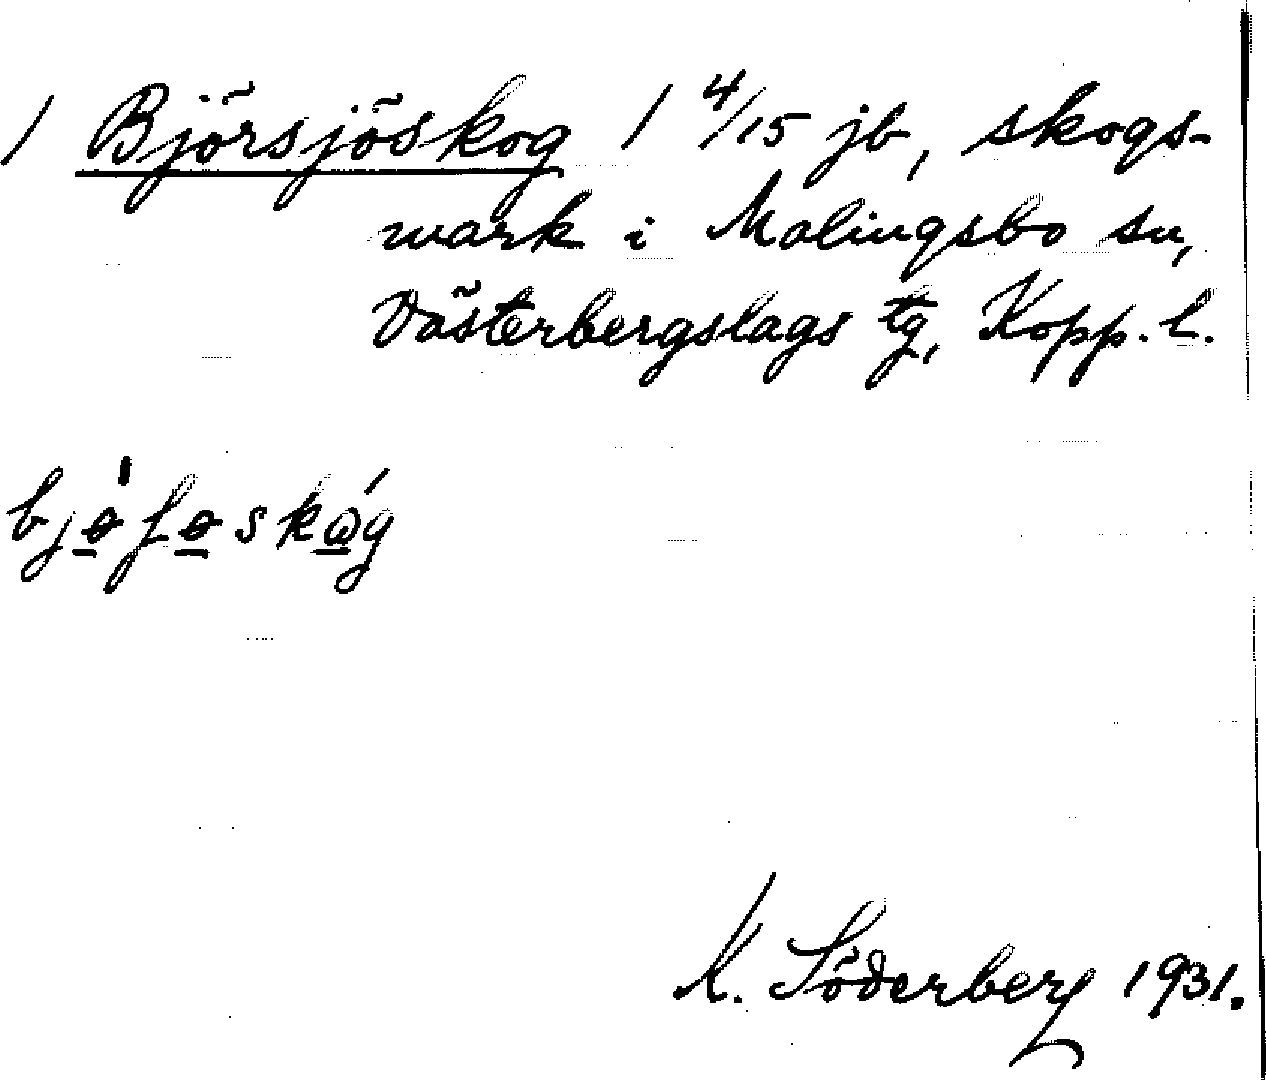 1 Björsjöskog 1 4/15 jb, skogs-
mark i Malingsbo sn,
Västerbergslags tg, Kopp. l.
K. Söderberg 1931.